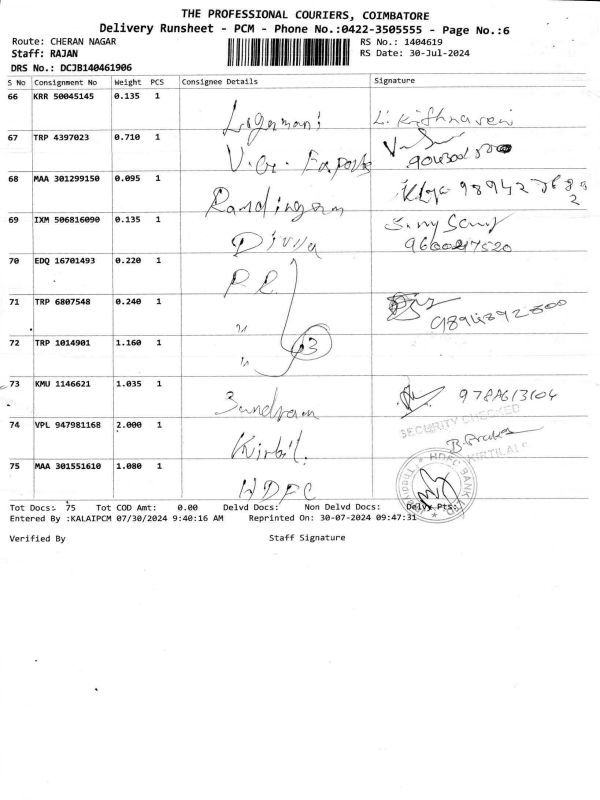 THE PROFESSIONAL COURIERS, COIMBATORE
Delivery Runsheet - PCM - Phone No.:0422-3505555 - Page No.:6
Route: CHERAN NAGAR
RS No.: 1404619
Staff: RAJAN
RS Date: 30-Jul-2024
DRS No.: DCJB140461906
S No Consignment No Weight PCS Consignee Details Signature
66 KRR 50045145 0.135 1
Logamani
67 TRP 4397023 0.710 1
V.G. Exports
68 MAA 301299150 0.095 1
69 IXM 506816090 0.135 1
Divya
9600217520
70 EDQ 16701493 0.220 1
P.R.
71 TRP 6807548 0.240 1
"
9894892800
72 TRP 1014901 1.160 1
"
3
73 KMU 1146621 1.035 1
Sundram
74 VPL 947981168 2.000 1
SECURITY CHECKED
KIRTILALS
75 MAA 301551610 1.080 1
HDFC
HDFC BANK LTD
Tot Docs: 75 Tot COD Amt: 0.00 Delvd Docs: Non Delvd Docs: Delvy Pts:
Entered By :KALAIPCM 07/30/2024 9:40:16 AM Reprinted On: 30-07-2024 09:47:31
Verified By Staff Signature